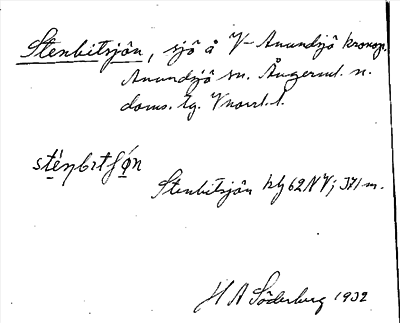 Stenbitsjön, sjö å V-Anundsjö kronop.
Anundsjö sn. Ångerml. n.
doms. lg. Vnorrl. l.
Stenbitsjön hly 62 NV; 371 m.
H A Söderberg 1932